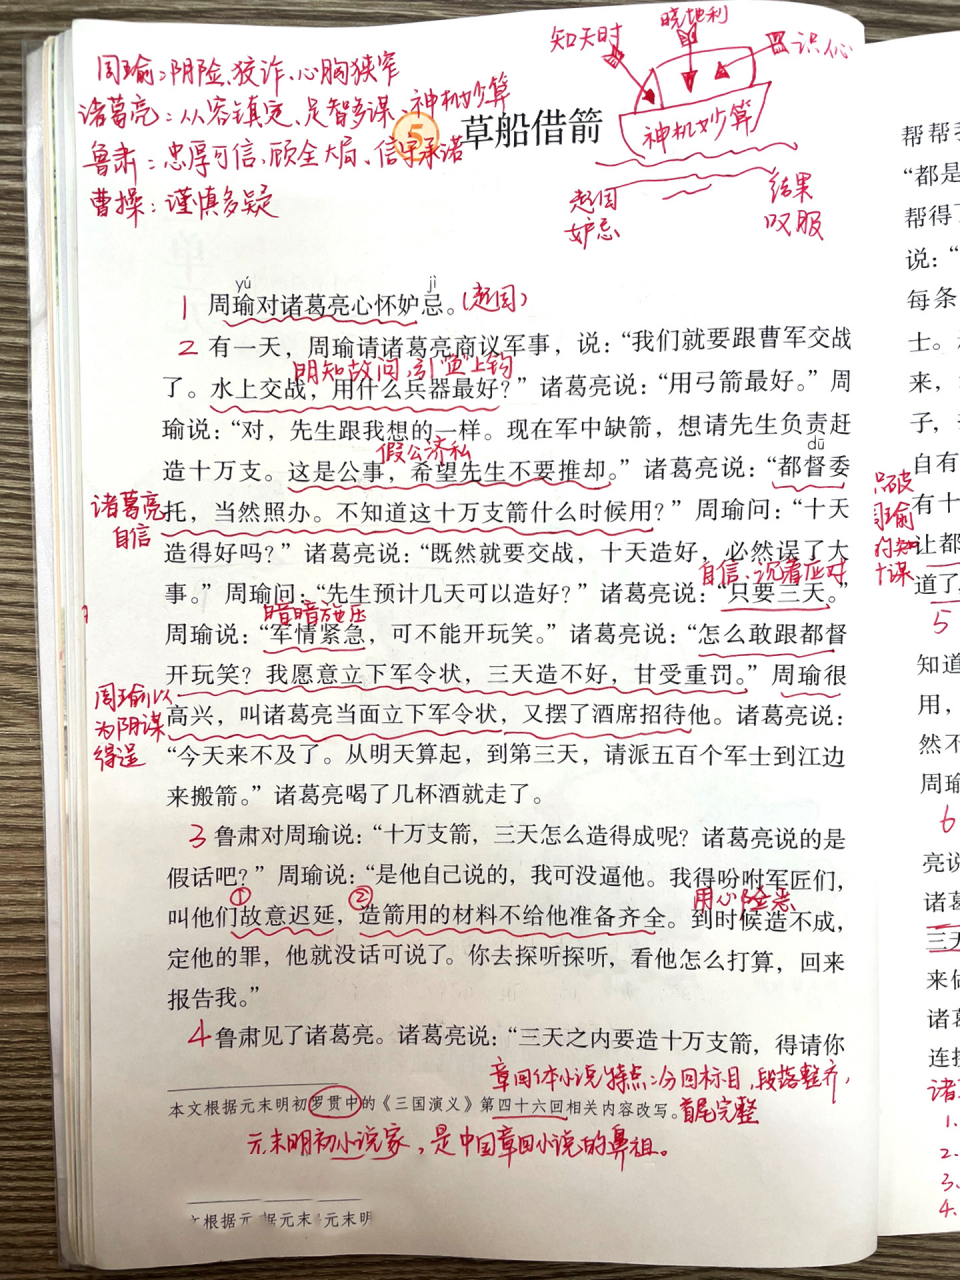 知天时
晓地利
识人心
周瑜：阴险、狡诈、心胸狭窄
诸葛亮：从容镇定、足智多谋、神机妙算
鲁肃：忠厚可信、顾全大局、信守承诺
曹操：谨慎多疑
5 草船借箭
神机妙算
起因
妒忌
结果
叹服
yú jì
1 周瑜对诸葛亮心怀妒忌。（起因）
2 有一天，周瑜请诸葛亮商议军事，说：“我们就要跟曹军交战
明知故问，引“鱼”上钩
了。水上交战，用什么兵器最好？”诸葛亮说：“用弓箭最好。”周
瑜说：“对，先生跟我想的一样。现在军中缺箭，想请先生负责赶
假公济私
dū
造十万支。这是公事，希望先生不要推却。”诸葛亮说：“都督委
诸葛亮
自信
托，当然照办。不知道这十万支箭什么时候用？”周瑜问：“十天
造得好吗？”诸葛亮说：“既然就要交战，十天造好，必然误了大
自信、沉着应对
事。”周瑜问：“先生预计几天可以造好？”诸葛亮说：“只要三天。”
暗暗施压
周瑜说：“军情紧急，可不能开玩笑。”诸葛亮说：“怎么敢跟都督
开玩笑？我愿意立下军令状，三天造不好，甘受重罚。”周瑜很
周瑜以
为阴谋
得逞
高兴，叫诸葛亮当面立下军令状，又摆了酒席招待他。诸葛亮说：
“今天来不及了。从明天算起，到第三天，请派五百个军士到江边
来搬箭。”诸葛亮喝了几杯酒就走了。
3 鲁肃对周瑜说：“十万支箭，三天怎么造得成呢？诸葛亮说的是
假话吧？”周瑜说：“是他自己说的，我可没逼他。我得吩咐军匠们，
① ② 用心险恶
叫他们故意迟延，造箭用的材料不给他准备齐全。到时候造不成，
定他的罪，他就没话可说了。你去探听探听，看他怎么打算，回来
报告我。”
4 鲁肃见了诸葛亮。诸葛亮说：“三天之内要造十万支箭，得请你
章回体小说特点：分回标目，段落整齐，
首尾完整
本文根据元末明初罗贯中的《三国演义》第四十六回相关内容改写。
元末明初小说家，是中国章回小说的鼻祖。
文根据元 据元末 元末明
帮帮
“都是
帮得了
说：“
每条
士。
来，
子，
自有
有十
让都
道了
周瑜
的
5
知道
用，
然不
周瑜
6
亮说
诸葛
三天
来做
诸葛
连接
1.
2.
3.
4.